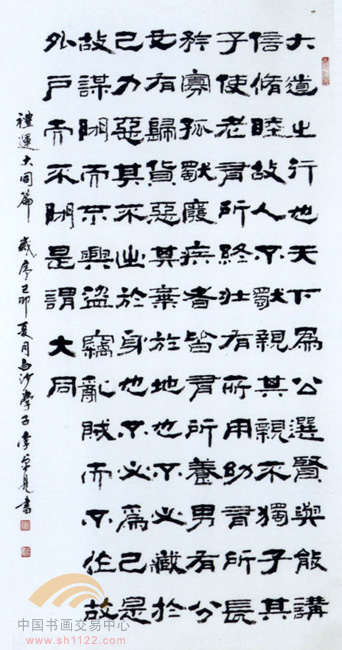 大道之行也天下為公選賢與能講
信脩睦故人不獨親其親不獨子其
子使老有所終壯有所用幼有所長
矜寡孤獨廢疾者皆有所養男有分
女有歸貨惡其棄於地也不必藏於
己力惡其不出於身也不必為己是
故謀閉而不興盜竊亂賊而不作故
外戶而不閉是謂大同
禮運大同篇 歲序己卯夏月長沙學子李書
中国书画交易中心
www.sh1122.com